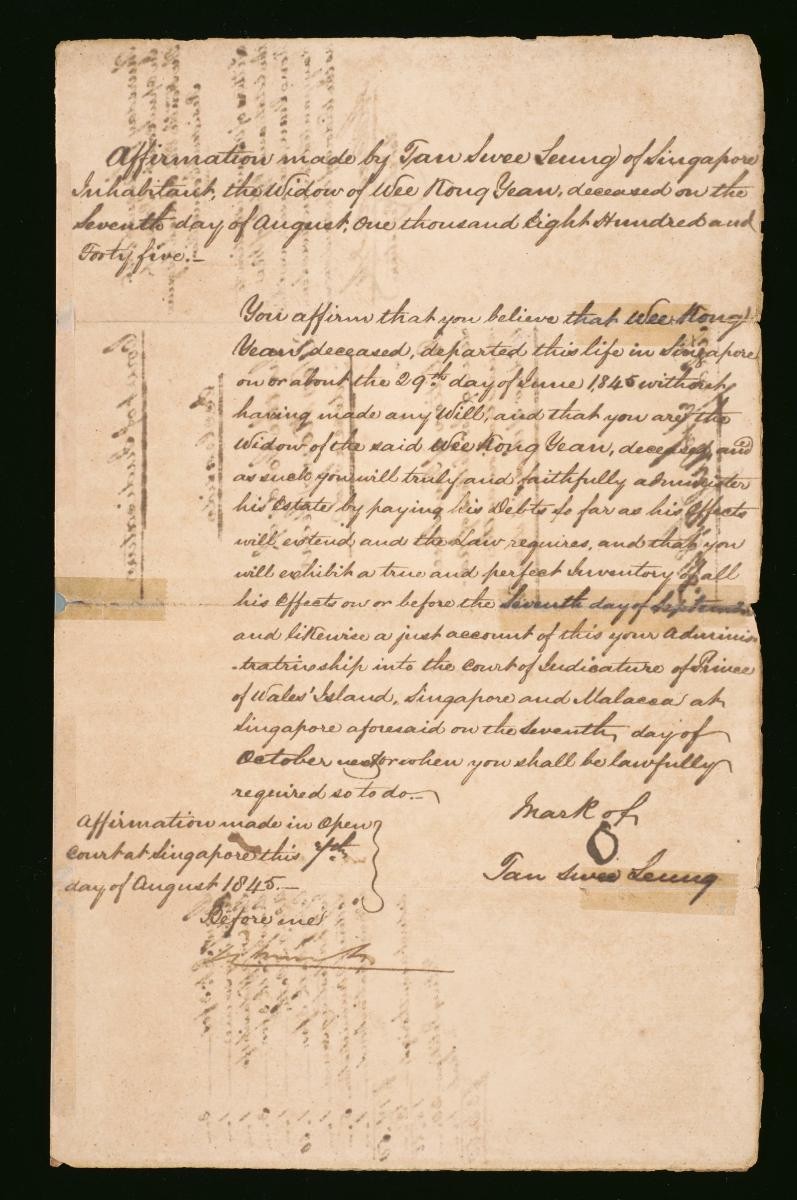 Affirmation made by Tan Swee Seung of Singapore
Inhabitant, the Widow of Wee Kong Yean, deceased on the
Seventh day of August, One thousand Eight Hundred and
Forty five.—
You affirm that you believe that Wee Kong
Yean, deceased, departed this life in Singapore
on or about the 29th day of June 1845 without
having made any Will, and that you are the
Widow of the said Wee Kong Yean, deceased, and
as such you will truly and faithfully administer
his Estate by paying his Debts so far as his Effects
will extend and the Law requires, and that you
will exhibit a true and perfect Inventory of all
his Effects on or before the Seventh day of September
and likewise a just account of this your Adminis
tratrixship into the Court of Judicature of Prince
of Wales' Island, Singapore and Malacca at
Singapore aforesaid on the Seventh day of
October next or when you shall be lawfully
required so to do.—
Affirmation made in Open
Court at Singapore this 7th
day of August 1845.—
Before me
Mark of
Tan Swee Seung